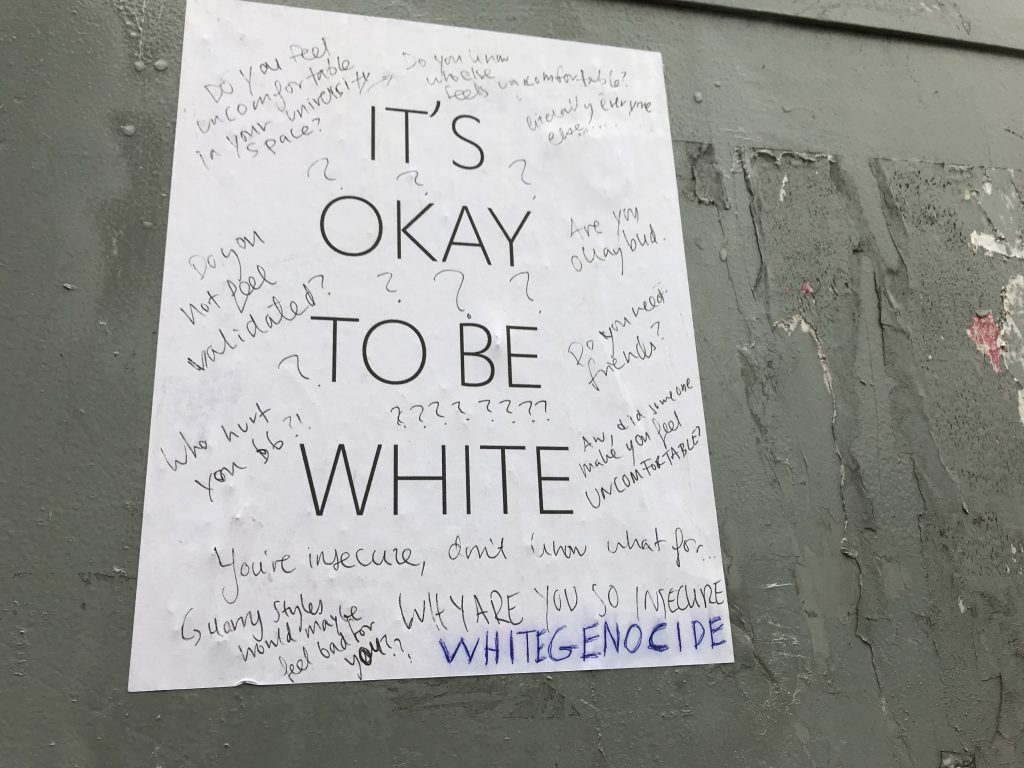 Do you feel
uncomfortable
in your university
space?
Do you know
who else
feels uncomfortable?
literally everyone
else.....
IT'S
? ? ?
OKAY
Are you
okay bud.
Do you
not feel
validated?
? ? ?
TO BE
?
Do you need
friends?
???? ????
Who hurt
you bb?!
WHITE
Aw, did someone
make you feel
UNCOMFORTABLE?
You're insecure, don't know what for..
Harry Styles
would maybe
feel bad for
you!??
WHY ARE YOU SO INSECURE
WHITEGENOCIDE